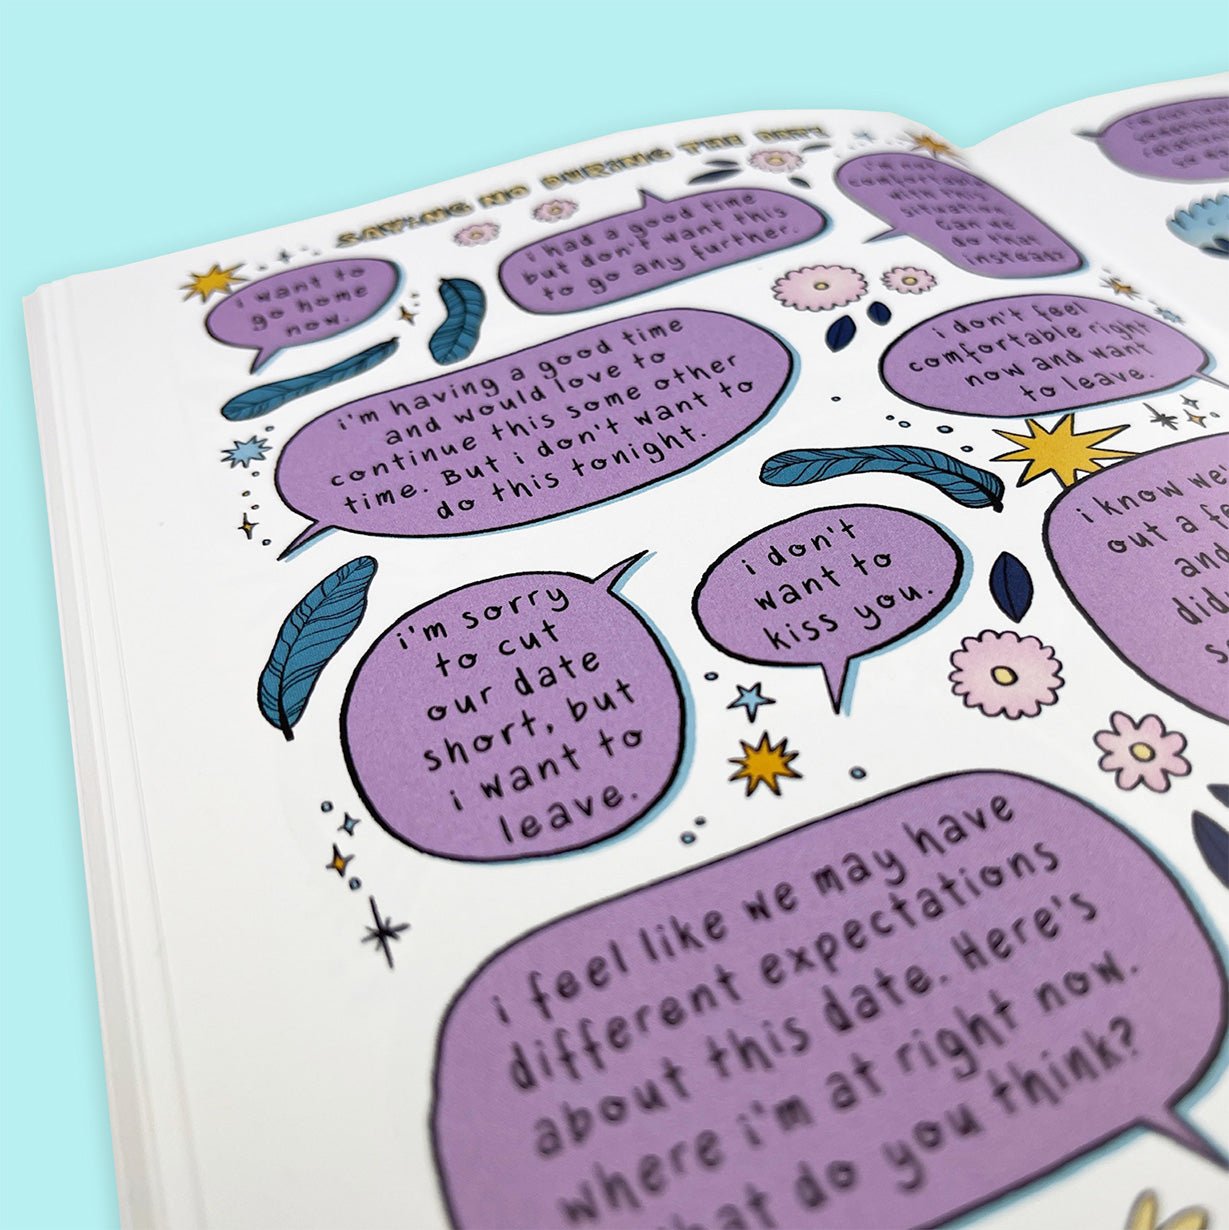 SAYING NO DURING THE DATE
i want to
go home
now.
i had a good time
but don't want this
to go any further.
i'm not
comfortable
with this
situation.
Can we
do that
instead?
i'm having a good time
and would love to
continue this some other
time. But i don't want to
do this tonight.
i don't feel
comfortable right
now and want
to leave.
i'm sorry
to cut
our date
short, but
i want to
leave.
i don't
want to
kiss you.
i know we
out a fe
and
did
so
i feel like we may have
different expectations
about this date. Here's
where i'm at right now.
what do you think?